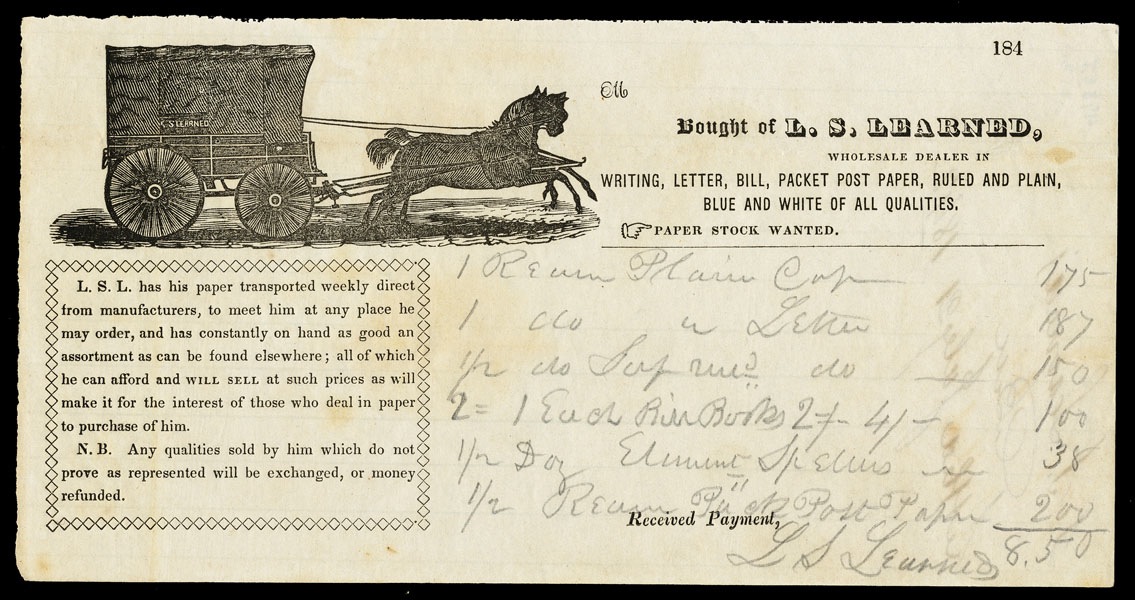 184
M
Bought of L. S. LEARNED,
WHOLESALE DEALER IN
WRITING, LETTER, BILL, PACKET POST PAPER, RULED AND PLAIN,
BLUE AND WHITE OF ALL QUALITIES.
PAPER STOCK WANTED.
L. S. LEARNED
L. S. L. has his paper transported weekly direct
from manufacturers, to meet him at any place he
may order, and has constantly on hand as good an
assortment as can be found elsewhere; all of which
he can afford and WILL SELL at such prices as will
make it for the interest of those who deal in paper
to purchase of him.
N. B. Any qualities sold by him which do not
prove as represented will be exchanged, or money
refunded.
1 Ream Plain Cap 175
1 do " Letter 187
1/2 do Sup do 150
2= 1 Each Books 2/- 4/- 100
1/2 Doz Element Spellers 38
1/2 Ream Pack Post Paper 200
8.50
Received Payment,
L S Learned